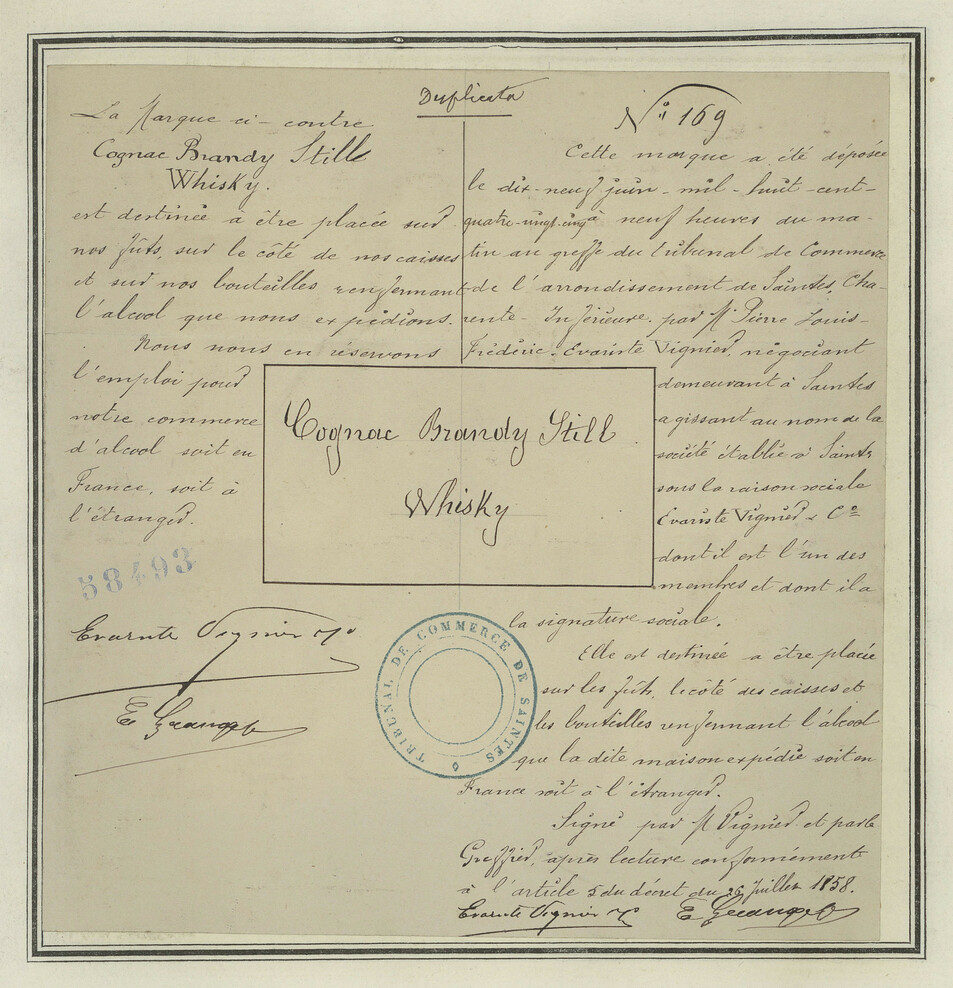 Duplicata
La Marque ci-contre
Cognac Brandy Still
Whisky.
est destinée à être placée sur
nos fûts, sur le côté de nos caisses
et sur nos bouteilles renfermant
l'alcool que nous expédions.
Nous nous en réservons
l'emploi pour
notre commerce
d'alcool soit en
France, soit à
l'étranger.
58493
Evariste Vignier & Co
Cognac Brandy Still
Whisky
TRIBUNAL DE COMMERCE DE SAINTES
No 169
Cette marque a été déposée
le dix-neuf juin - mil - huit - cent -
quatre-vingt-cinq à neuf heures du ma-
tin au greffe du tribunal de Commerce
de l'arrondissement de Saintes, Cha-
rente - Inférieure. par M. Pierre Louis-
Frédéric-Evariste Vignier, négociant
demeurant à Saintes
agissant au nom de la
société établie à Saintes
sous la raison sociale
Evariste Vignier & Cie
dont il est l'un des
membres et dont il a
la signature sociale.
Elle est destinée a être placée
sur les fûts, le côté des caisses et
les bouteilles renfermant l'alcool
que la dite maison expédie soit en
France soit à l'étranger.
Signé par M Vignier et par le
Greffier, après lecture conformément
à l'article 5 du décret du 26 Juillet 1858.
Evariste Vignier & Co